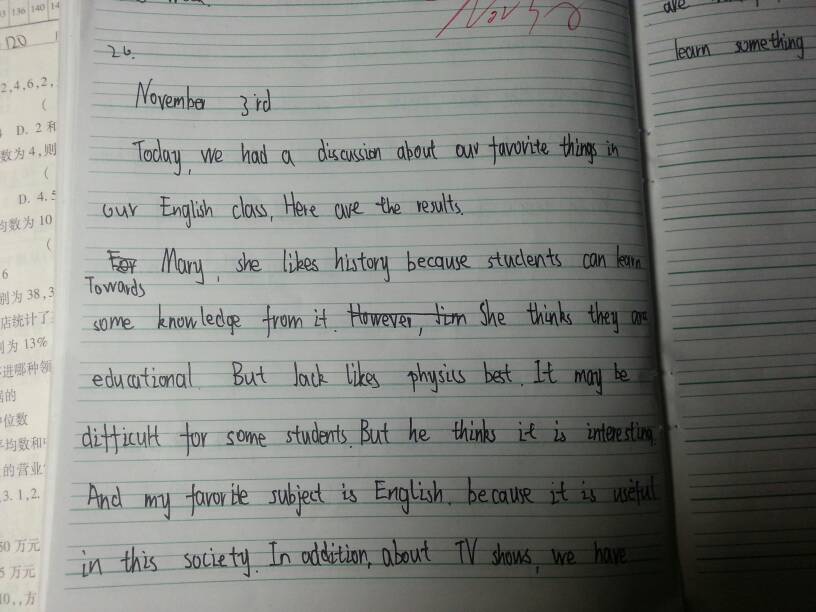 136 140 14
120
2,4,6,2,
(
D. 2 和
数为 4,则
(
D. 4.5
均数为 10
(
6
别为 38,3
店统计了
别为 13%
进哪种领
据的
中位数
平均数和
的营业
3. 1,2.
50 万元
5 万元
10,,方
Nov 3
26.
November 3rd
Today, we had a discussion about our favorite things in
our English class, Here are the results.
For Mary, she likes history because students can learn
Towards
some knowledge from it. However, Jim She thinks they are
educational. But Jack likes physics best. It may be
difficult for some students. But he thinks it is interesting.
And my favorite subject is English. because it is useful
in this society. In addition, about TV shows, we have
are
learn something